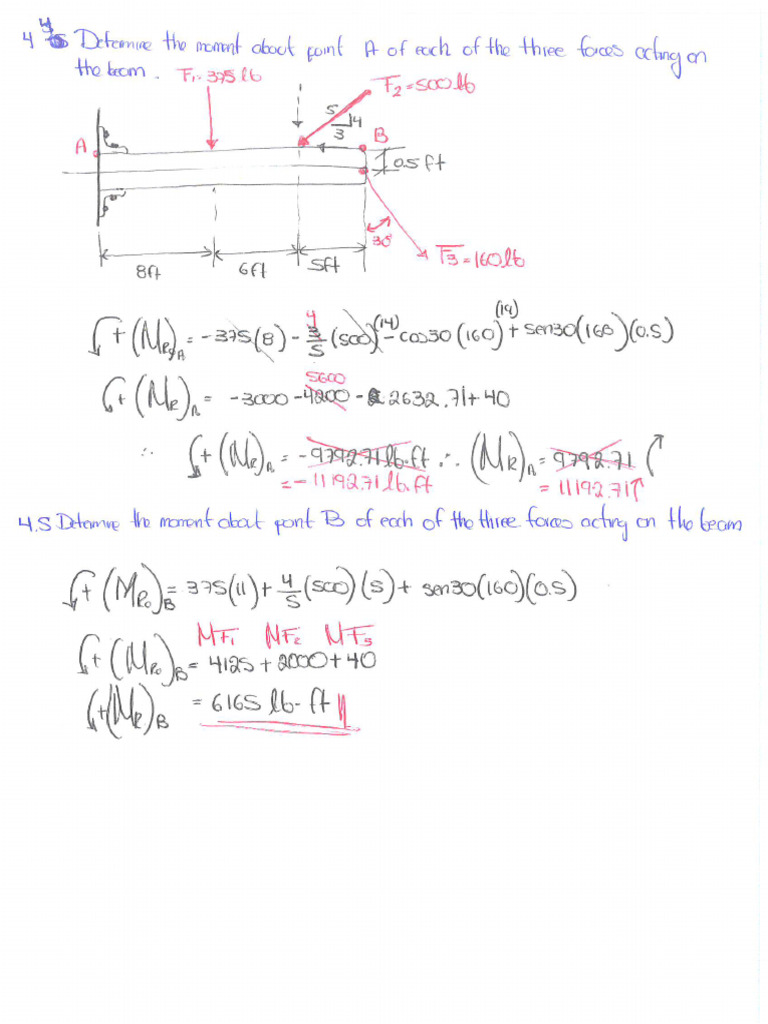 4 4 Determine the moment about point A of each of the three forces acting on
the beam. F1=375 lb
F2=500 lb
5
4
3
A
B
0.5 ft
30°
F3=160 lb
8ft
6ft
5ft
(19)
4
+(MR)A = -375(8) - 3/5 (500)(14) - cos30(160) + sen30(160)(0.5)
5600
+(MR)A = -3000 - 4200 - 2632.71 + 40
∴ +(MR)A = -9792.71 lb-ft ∴ (MR)A = 9792.71
= -11192.71 lb.ft = 11192.71
4.5 Determine the moment about point B of each of the three forces acting on the beam
+(MRo)B = 375(11) + 4/5 (500)(5) + sen30(160)(0.5)
MF1 MF2 MF3
+(MRo)B = 4125 + 2000 + 40
+(MR)B = 6165 lb-ft